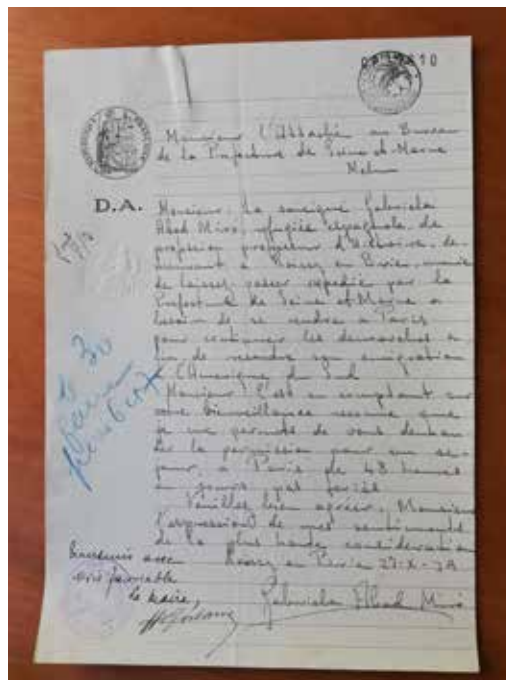 Monsieur l'Attaché au Bureau
de la Prefecture de Seine et Marne
Melun
D.A.
Monsieur: La sousigné Gabriela
Abad Miró, refugiée espagnole, de
profession professeur d'Histoire, de-
meurant a Roissy en Brie, munie
de laissez passer expedié par la
Prefecture de Seine et Marne a
besoin de se rendre a Paris
pour continuer les demarches
de son emigration
a l'Amerique du Sud
Monsieur: C'est en comptant sur
votre bienveillance que
je me permets de vous deman-
der la permission pour un se-
jour, a Paris de 48 heures
en jours pas feriés
Veuillez bien agréer, Monsieur
l'expression de mes sentiments
de la plus haute consideration
Roissy en Brie 27-X-39
Gabriela Abad Miró
Transmis avec
avis favorable
Le Maire,